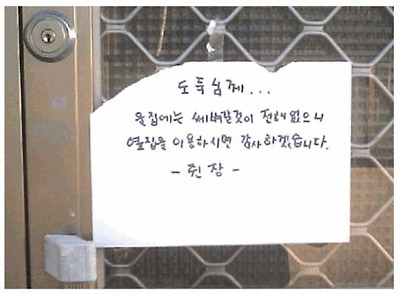 도둑님께...
울집에는 쎄벼갈것이 전혀 없으니
옆집을 이용하시면 감사하겠습니다.
- 쥔 장 -